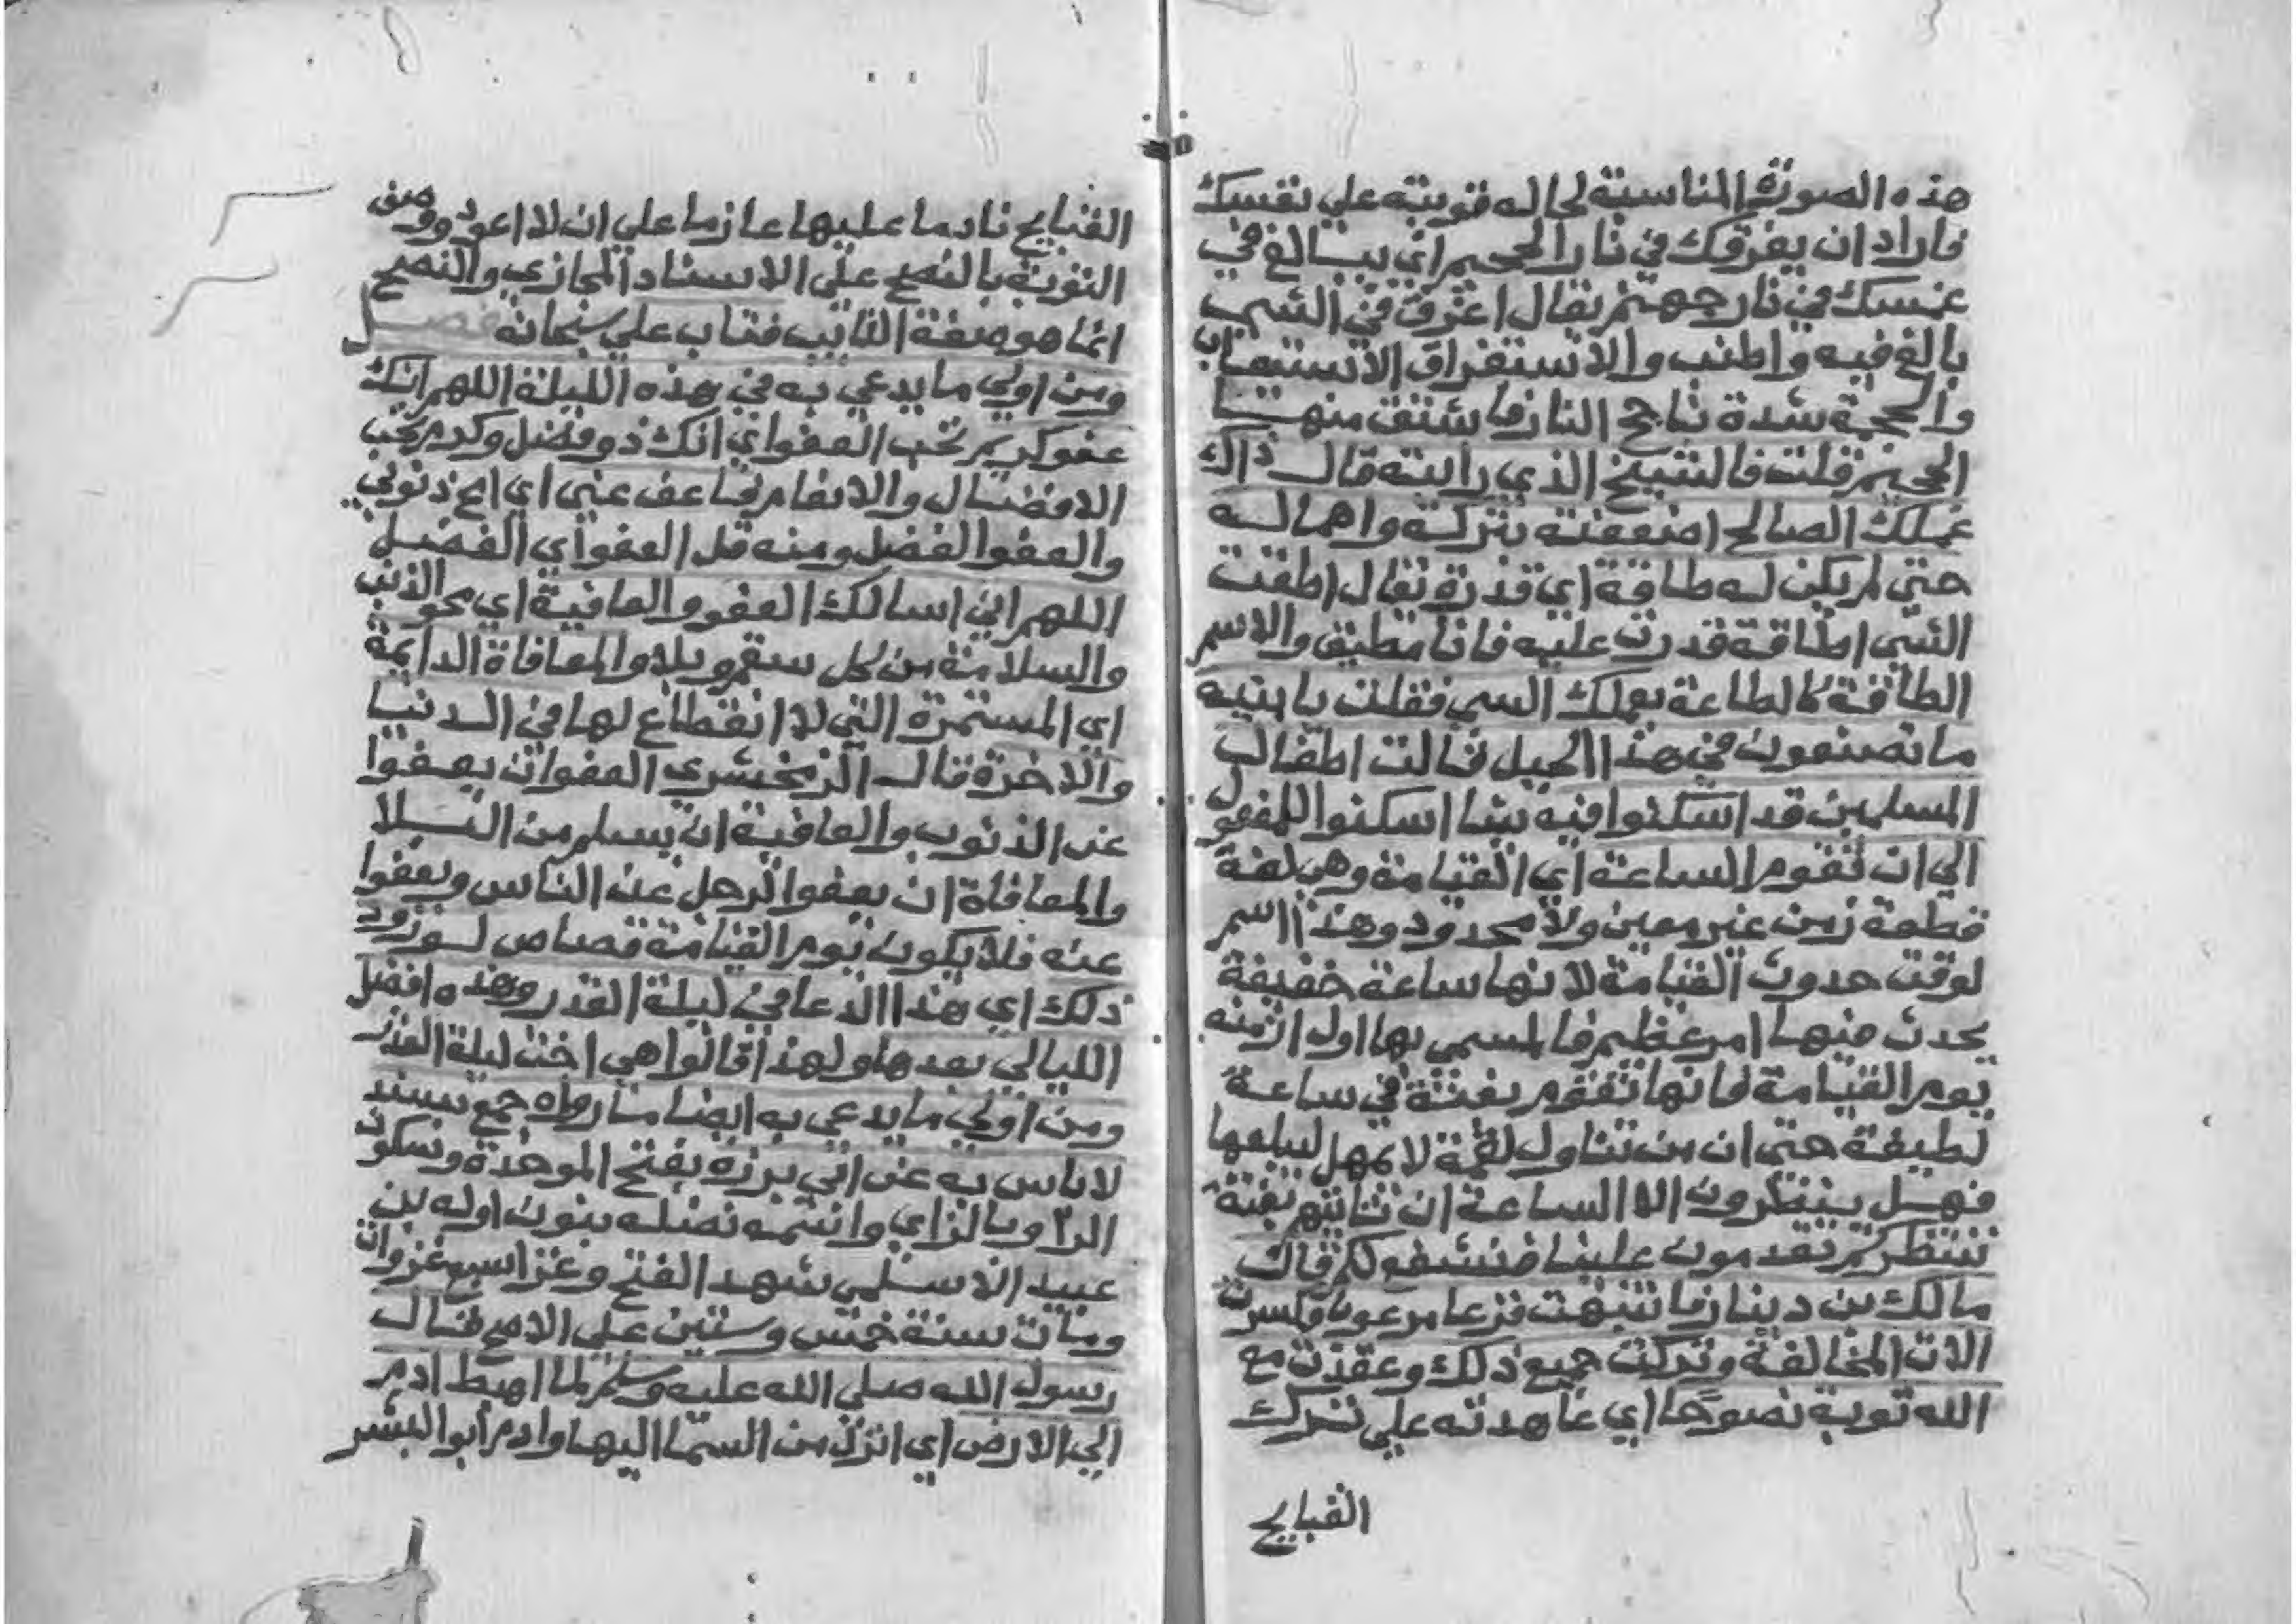 هذه الصورة المناسبة لحاله قويته علي نفسك
فاراد ان يغرقك في نار الجحيم اي يبالغ في
غمسك في نار جهنم يقال اغرق في الشي
بالغ فيه واطنب والاستغراق الاستيعاب
والجحمة شدة تاجج النار فاشتق منها
الجحيم قلت فالشيخ الذي رايته قال ذاك
عملك الصالح اضعفته بتركه واهماله
حتي لم يكن له طاقة اي قدرة يقال اطقت
الشي اطاقة قدرت عليه فانا مطيق والاسم
الطاقة كالطاعة بعملك السي فقلت يا بنيه
ما تصنعون في هذا الجبل قالت اطفال
المسلمين قد اسكنوا فيه بنا اسكنوا للمفعول
الي ان تقوم الساعة اي القيامة وهي لغة
قطعة زمن غير معين ولا محدود وهذا اسم
لوقت حدوث القيامة لانها ساعة خفيفة
يحدث فيها امر عظيم فالمسمي بها اول ازمنه
يوم القيامة فانها تقوم بغتة في ساعة
لطيفة حتي ان من تناول لقمة لا يمهل ليبلعها
فهل ينظرون الا الساعة ان تاتيهم بغتة
ننتظركم تقدمون علينا فنشفع لكم قال
مالك بن دينار فانتبهت فزعا مرعوبا وكسرت
الات المخالفة وتركت جميع ذلك وعقدت مع
الله توبة نصوحا اي عاهدته علي تترك
القبايح
القبايح نادما عليها عازما علي ان لا اعود ووصف
التوبة بالنصح علي الاسناد المجازي والنصح
انما هو صفة التايب فتاب علي سبحانه فصل
ومن اولي ما يدعي به في هذه الليلة اللهم انك
عفو كريم تحب العفو اي انك ذو فضل وكرم تحب
الافضال والانعام فاعف عني اي امح ذنوبي
والعفو الفضل ومنه قل العفو اي الفضل
اللهم اني اسالك العفو والعافية اي محو الذنب
والسلامة من كل سقم وبلا والمعافاة الدايمة
اي المستمرة التي لا انقطاع لها في الدنيا
والاخرة قال الزمخشري العفو ان يعفوا
عن الذنوب والعافية ان يسلم من البلا
والمعافاة ان يعفوا الرجل عن الناس ويعفوا
عنه فلا يكون يوم القيامة قصاص
ذلك اي هذا الدعا في ليلة القدر وهذه افضل
الليالي بعدها ولهذا قالوا هي اخت ليلة القدر
ومن اولي ما يدعي به ايضا ما رواه جمع بسند
لا باس به عن ابي برزه بفتح الموحدة وسكون
الرا وبالزاي واسمه نضله بنون اوله بن
عبيد الاسلمي شهد الفتح وغزا سبع غزوات
ومات سنة خمس وستين علي الاصح قال
رسول الله صلي الله عليه وسلم لما اهبط ادم
الي الارض اي انزل من السما اليها وادم ابو البشر